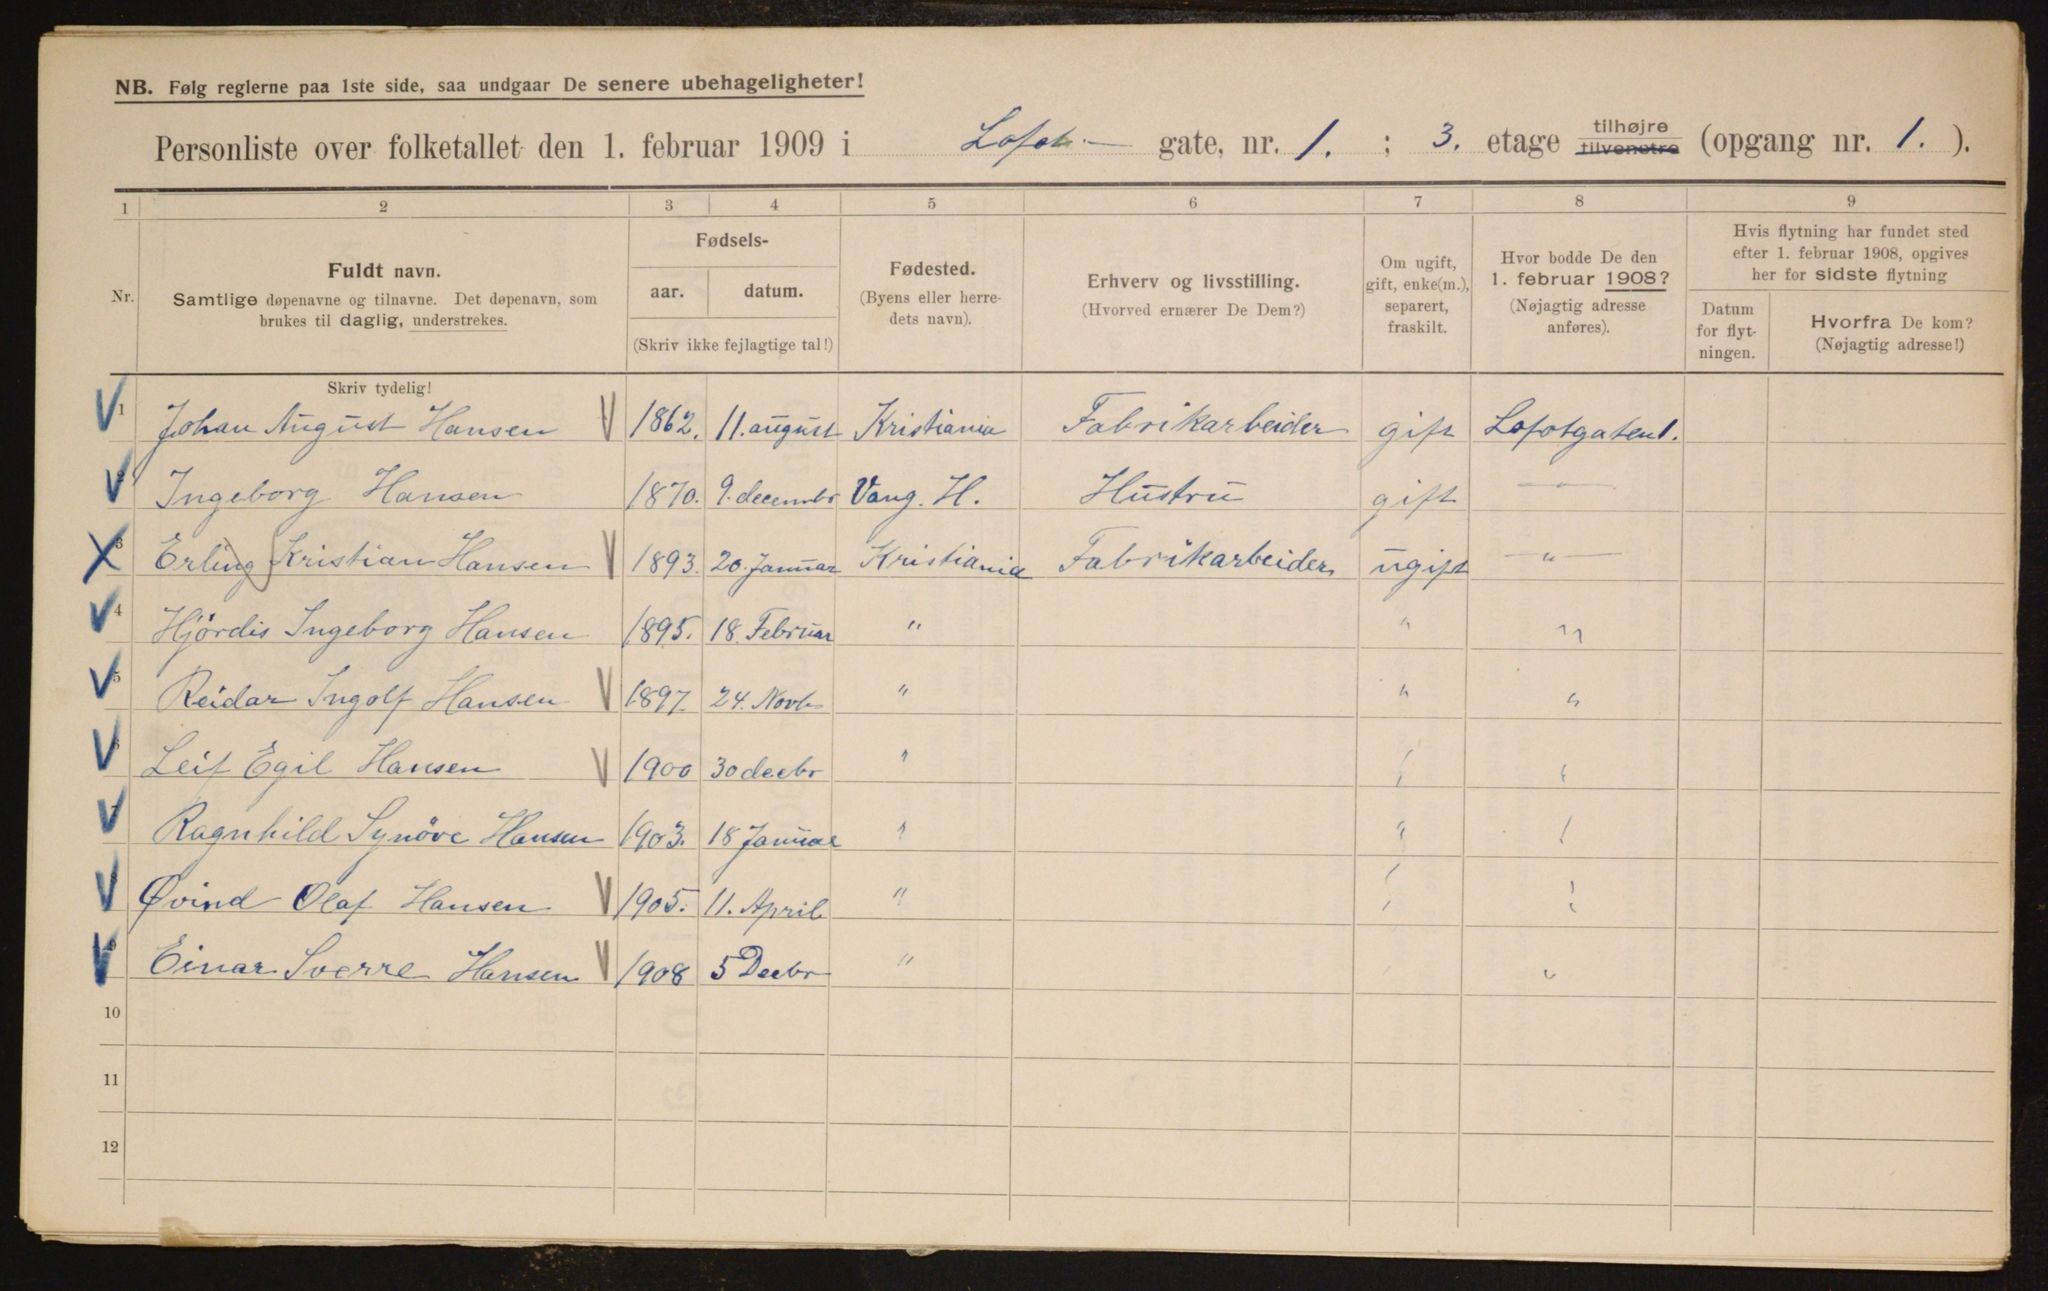 NB. Følg reglerne paa 1ste side, saa undgaar De senere ubehageligheter!
Personliste over folketallet den 1. februar 1909 i Lofot— gate, nr. 1. ; 3. etage tilhøjre tilvenstre (opgang nr. 1. ).
1 2 3 4 5 6 7 8 9
Nr.
Fuldt navn.
Samtlige døpenavne og tilnavne. Det døpenavn, som
brukes til daglig, understrekes.
Fødsels-
aar. datum.
(Skriv ikke fejlagtige tal!)
Fødested.
(Byens eller herre-
dets navn).
Erhverv og livsstilling.
(Hvorved ernærer De Dem?)
Om ugift,
gift, enke(m.),
separert,
fraskilt.
Hvor bodde De den
1. februar 1908?
(Nøjagtig adresse
anføres).
Hvis flytning har fundet sted
efter 1. februar 1908, opgives
her for sidste flytning
Datum
for flyt-
ningen.
Hvorfra De kom?
(Nøjagtig adresse!)
Skriv tydelig!
1 Johan August Hansen 1862. 11. august Kristiania Fabrikarbeider gift Lofotgaten 1.
2 Ingeborg Hansen 1870. 9. decembr Vang. H. Hustru gift —"—
3 Erling Kristian Hansen 1893. 20. Januar Kristiania Fabrikarbeider ugift —"—
4 Hjördis Ingeborg Hansen 1895. 18. Februar " " "
5 Reidar Ingolf Hansen 1897. 24. Novb " " "
6 Leif Egil Hansen 1900 30 decbr " " "
7 Ragnhild Synöve Hansen 1903. 18 Januar " " "
8 Øvind Olaf Hansen 1905. 11. April " " "
9 Einar Sverre Hansen 1908 5 Decbr " " "
10
11
12